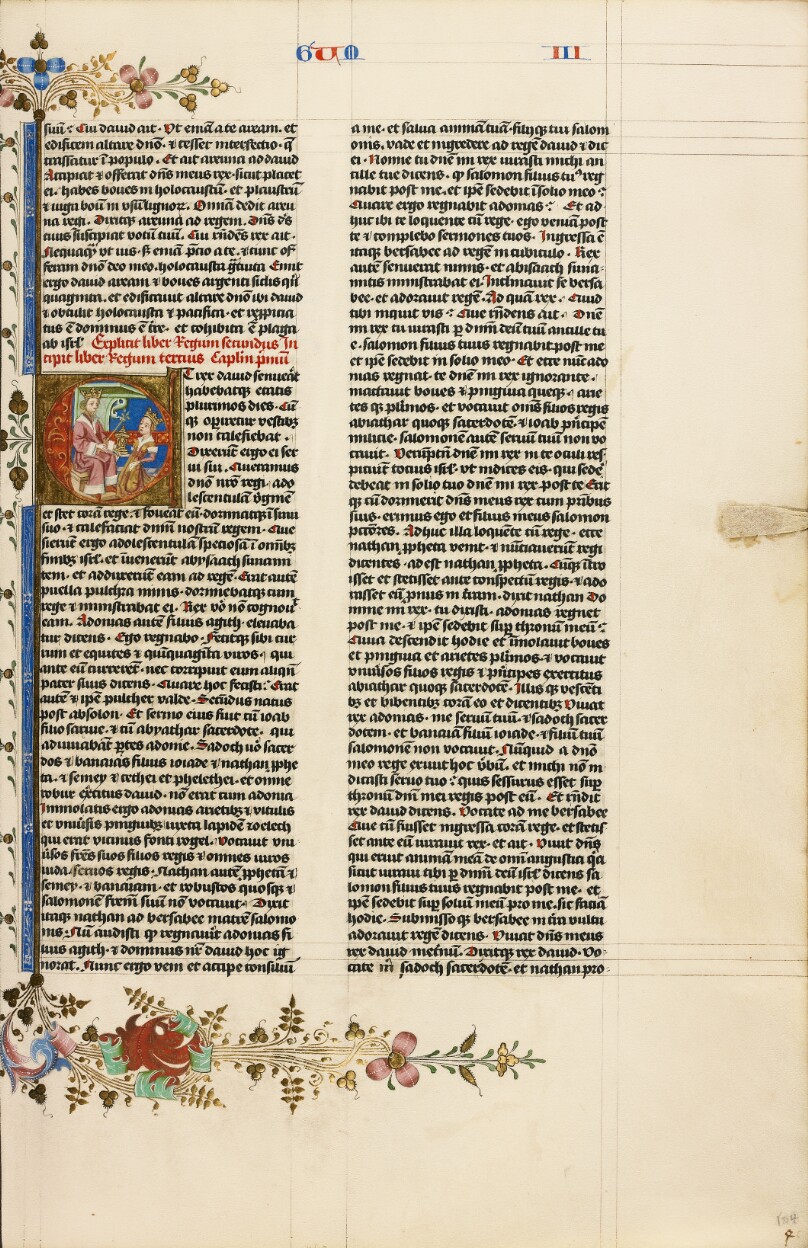 GUM III
suū? Cui dauid ait· Vt emā a te aream· et
edificem altare dño· & cesset interfectio· q̄
crassatur ī populo· Et ait areuna ad dauid
Accipiat & offerat dñs meus rex· sicut placet
ei· habes boues in holocaustū· et plaustrū
& iuga boū in vsū lignoꝝ· Omīa dedit areu
na regi· Dixitqȝ areuna ad regem· Dñs dš
tuus suscipiat votū tuū· Cui rñdēs rex ait·
Nequaqȝ vt uis· sȝ emā p̄cio a te· & nunc of
feram dnō deo meo· holocausta gͣtuita Emit
ergo dauid aream & boues argenti siclis qͥn
quaginta· et edificauit altare dnō ibi dauid
& obtulit holocausta & pacifica· et repicia
tus ē dominus ē tre· et cohibita ē plaga
ab isrl̄ Explicit liber Regum secundus In
cipit liber Regum tercius Caplm p̄mū
Et rex dauid senuerāt
habebatqȝ etatis
plurimos dies· Cū
qȝ opiretur vestibȝ
non calefiebat·
Dixerūt ergo ei ser
ui sui· Queramus
dnō nrō regi· ado
lescentulā v̄gīnē
et stet corā rege· & foueat eū· dormiatqȝ ī sinu
suo· & calefaciat dnm̄ nostrū regem· Que
sierūt ergo adolescentulā speciosā ī omībȝ
finibȝ isrl̄· et īuenerūt abysaach sunam
tem· et adduxerūt eam ad regē· Erat autē
puella pulchra nimis· dormiebatqȝ cum
rege & ministrabat ei· Rex vō nō cognouͥ
eam· Adonias autē filius agith· eleuaba
tur dicens· Ego regnabo· Fecitqȝ sibi cur
rum et equites & quīquagīta viros· qui
ante eū currerēt· nec corripuit eum aliqñ
pater suus dicens· Quare hoc fecisti? Erat
autē & ipē pulcher valde· Secūdus natus
post absolon· Et sermo eius fuit cū ioab
filio saruie· & cū abyathar sacerdote· qui
adiuuabāt p̄tes adonie· Sadoch uō sacer
dos & banaias filius ioiade & nathan ꝓphe
ta· & semey & cethei et phelethei· et omne
robur ex̄citus dauid· nō erat cum adonia
Immolatis ergo adonias arietibȝ & vitulis
et vniūsis pinguibȝ iuxta lapidē zoelech
qui erat vicinus fonti rogel· Vocauit vni
ūsos frēs suos filios regis & omnes uiros
iuda· seruos regis· Nathan autē ꝓphetā &
semey· & banaiam· et robustos quosqȝ &
salomonē frem̄ suū nō vocauit· Dixit
itaqȝ nathan ad bersabee matrē salomo
nis· Nū audisti qp regnauit adonias fi
lius agith· & dominus nr̄ dauid hoc ig
norat· Nunc ergo veni et accipe consiliū
a me· et salua animā tuā· filijqȝ tui salom
onis· vade et ingredere ad regē dauid & dic
ei· Nonne tu dnē mi rex iurasti michi an
cille tue dicens· qp salomon filius tuꝰ reg
nabit post me· et ipē sedebit ī solio meo?
Quare ergo regnabit adomas? Et ad
huc ibi te loquente cū rege· ego veniā post
te & complebo sermones tuos· Ingressa ē
itaqȝ bersabee ad regē in cubiculo· Rex
autē senuerat nimis· et abisaach suna·
mitis ministrabat ei· Inclinauit se bersa
bee· et adorauit regē· Ad quā rex· Quid
tibi inquit vis? Que rn̄dens ait· Dnē
mi rex tu iurasti ꝑ dnm̄ deū tuū ancille tu
e· salomon filius tuus regnabit post me
et ipē sedebit in solio meo· Et ecce nūc ado
nias regnat· te dnē mi rex ignorante·
mactauit boues & pinguia queqȝ· arie
tes qȝ plīmos· et vocauit om̄s filios regis
abiathar quoqȝ sacerdotē· & ioab pn̄cipē
milicie· salomonē autē seruū tuū non vo
cauit· Verūptn̄ dnē mi rex in te oculi res
piciūt tocius isrl̄· vt indices eis· qui sede
debeat in solio tuo dnē mi rex post te Erit
qȝ cū dormierit dñs meus rex cum pr̄ibus
suis· erimus ego et filius meus salomon
pctōres· Adhuc illa loquēte cū rege· ecce
nathan ꝓpheta venit· & nūciauerūt regi
dicentes· ad est nathan ꝓpheta· Cūqȝ ītro
isset et stetisset ante conspectū regis· & ado
rasset eū pn̄us in tram· dixit nathan Do
mine mi rex· tu dixisti· adonias regnet
post me· & ipē sedebit suꝑ thronū meū?
Quia descendit hodie et īmolauit boues
et pinguia et arietes plīmos· & vocauit
vniūsos filios regis & pn̄cipes exercitus
abiathar quoqȝ sacerdotē· Illis qȝ vescēti
bȝ et bibentibȝ corā eo et dicentibȝ Viuat
rex adonias· me seruū tuū· & sadoch sacer
dotem· et banaiā filiū ioiade· & filiū tuū
salomonē non vocauit· Nūquid a dnō
meo rege exiuit hoc v̄bū· et michi nō in
dicasti seruo tuo? quis sessurus esset suꝑ
thronū dnī mei regis post eū· Et rn̄dit
rex dauid dicens· Vocate ad me bersabee
Que cū fuisset ingressa corā rege· & stetis
set ante eū iurauit rex· et ait· Viuit dn̄s
qui eruit animā meā de omī angustia qͥa
sicut iuraui tibi ꝑ dnm̄ deū isrl̄ dicens sa
lomon filius tuus regnabit post me· et
ipē sedebit suꝑ soliū meū pro me· sic faciā
hodie· Submisso qȝ bersabee in trā vultu
adorauit regē dicens· Viuat dn̄s meus
rex dauid inet̄nū· Dixitqȝ rex dauid· Vo·
cate m̄ sadoch sacerdotē· et nathan pro·